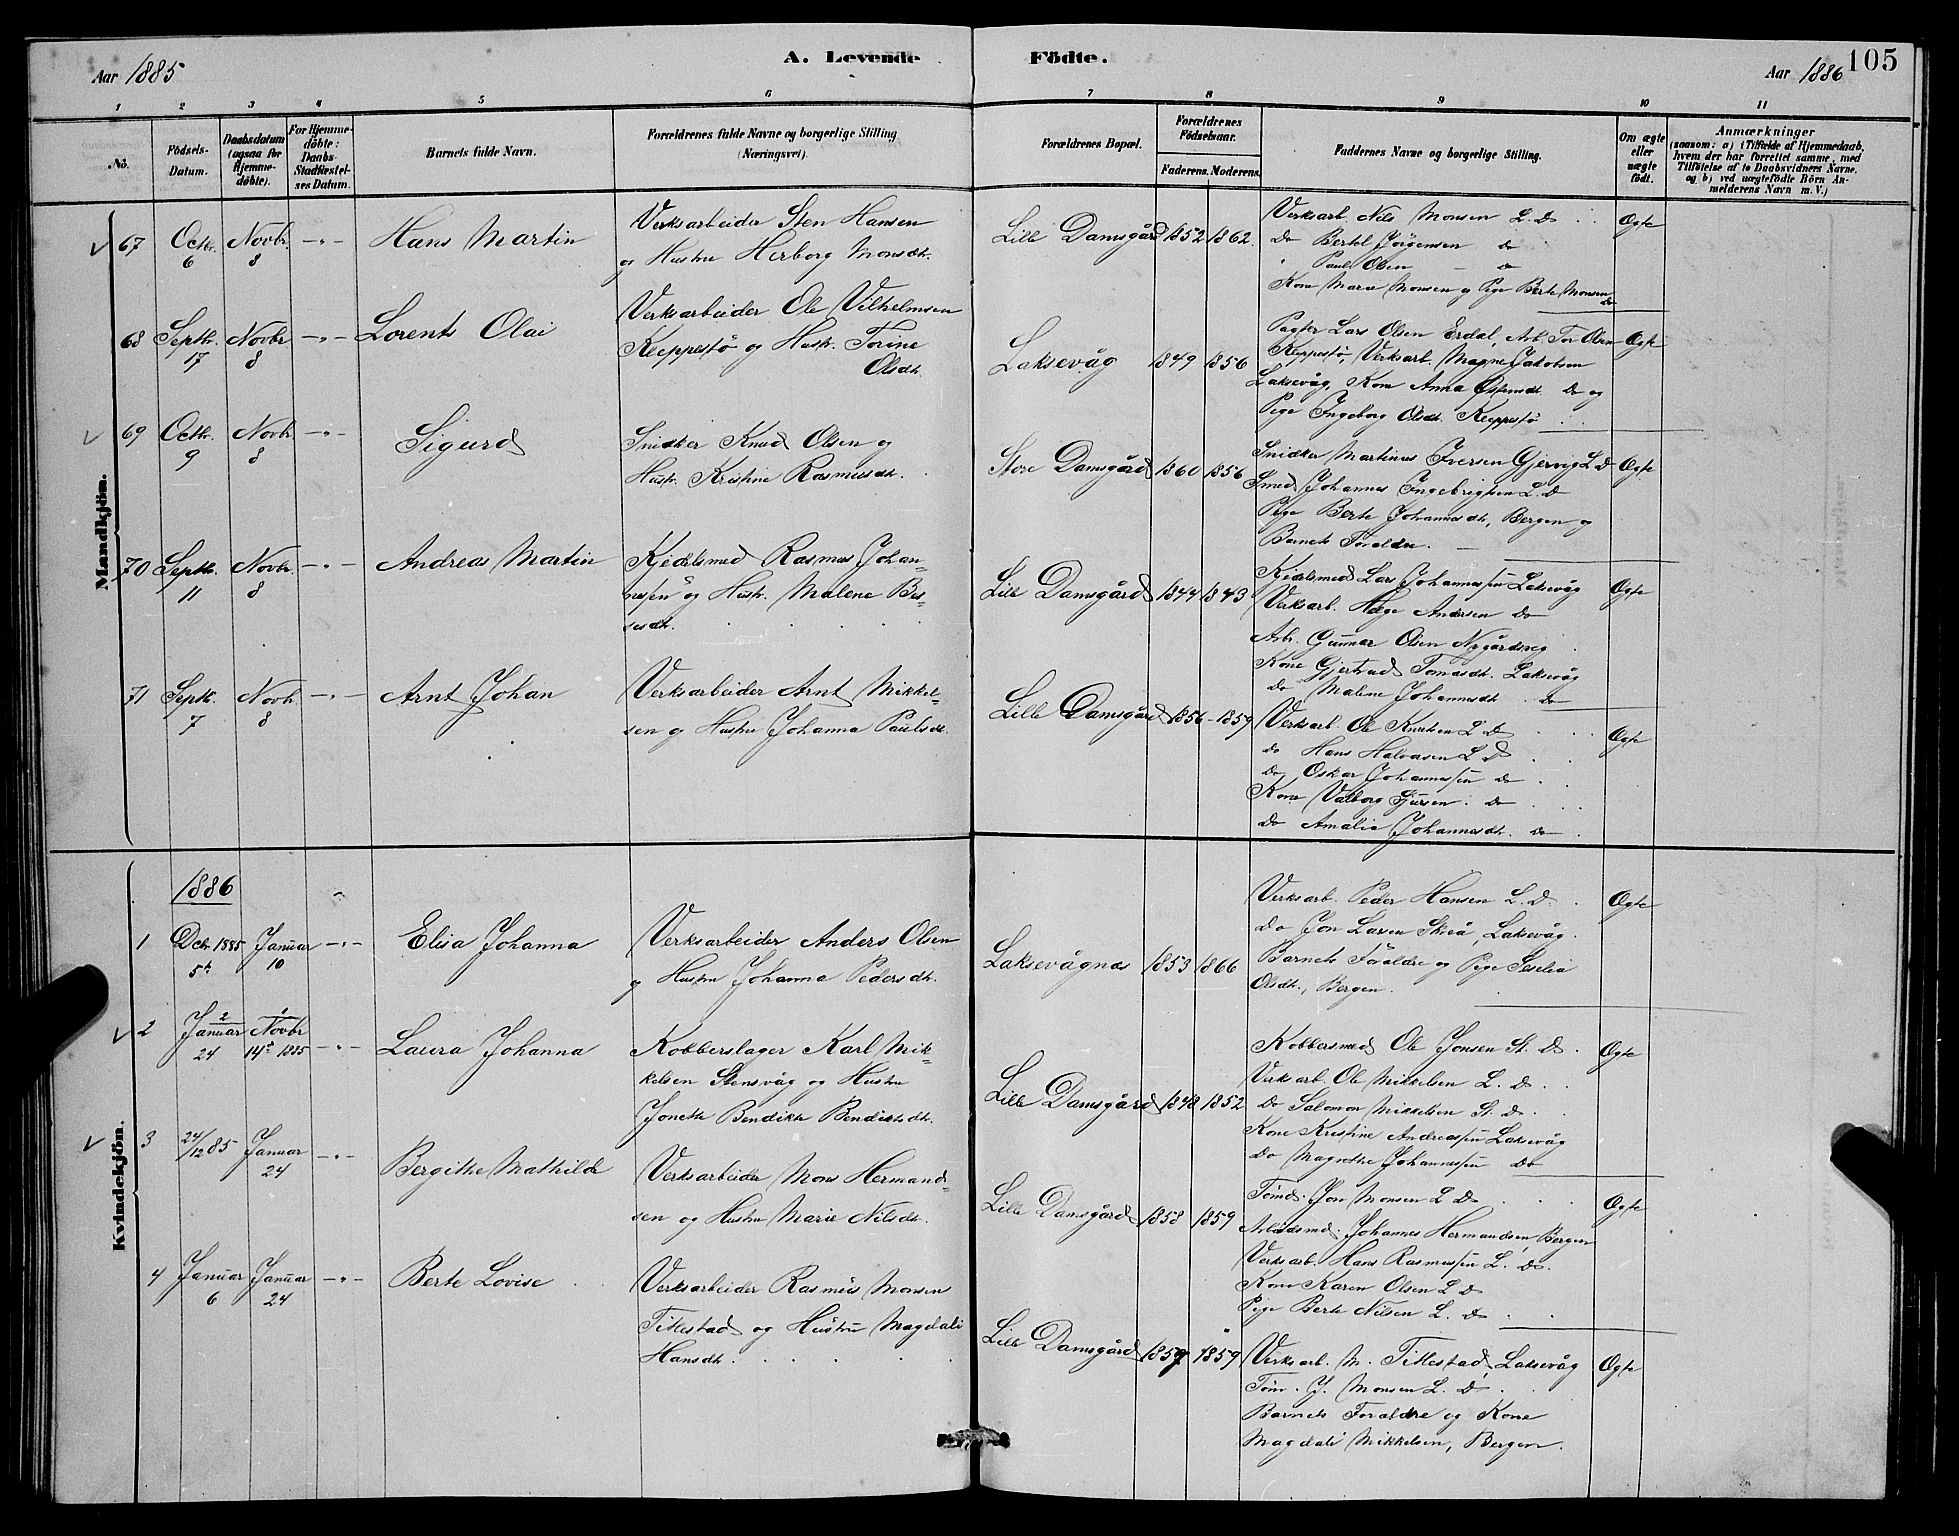 Aar 1885
A. Levende
Födte.
Aar 1886
105
1 2 3 4 5 6 7 8 9 10 11
No.
Födsels-Datum.
Daabsdatum (ogsaa for Hjemme-döbte).
For Hjemme-döbte: Daabs-Stadfæstel-ses Datum.
Barnets fulde Navn.
Forældrenes fulde Navne og borgerlige Stilling (Næringsvei).
Forældrenes Bopæl.
Forældrenes Födselsaar.
Faderens. Moderens.
Faddernes Navne og borgerlige Stilling.
Om ægte eller uægte födt.
Anmærkninger
(saasom: a) i Tilfælde af Hjemmedaab,
hvem der har forrettet samme, med
Tilföielse af to Daabsvidners Navne.
og b) ved uægtefödte Börn An-
melderens Navn m. V.)
Mandkjön.
67 Octbr. 6 Novbr. 8 -"- Hans Martin
Verksarbeider Sten Hansen
og Hustru Herborg Monsdtr.
Lille Damsgård 1852 1862.
Verksarb. Nils Monsen L. D.
do Bertel Jörgensen do
" Paul Olsen - do
Kone Marie Monsen og Pige Berte Monsen do
Ægte
68 Septbr. 17 Novbr 8 -"- Lorents Olai
Verksarbeider Ole Vilhelmsen
Kleppestö og Hustr. Torine
Olsdtr.
Laksevåg 1849 1856
Pagter Lars Olsen Erdal, Arb. Tor Olsen
Kleppestö, Verksarb. Magne Jakobsen
Laksevåg, Kone Anna Östensdtr. do og
Pige Ingeborg Olsdtr. Kleppestö
Ægte
69 Octbr. 9 Novbr 8 -"- Sigurd
Snidker Knud Olsen og
Hustr. Kristine Rasmusdtr.
Store Damsgård 1860 1856
Snidker Martinus Iversen Gjervig L. D
Smed Johannes Ingebrigtsen L. D
Pige Berte Johannesdtr, Bergen og
Barnets Foreldre.
Ægte
70 Septbr. 11 Novbr. 8 -"- Andreas Martin
Kjedelsmed Rasmus Johan-
nessen og Hustr. Malene Bas-
sesdtr.
Lille Damsgård 1844 1843
Kjedelsmed Lars Johannessen Laksevåg
Verksarb. Hage Andersen do
Arb. Gunnar Olsen Nygårdsvig
Kone Gjertrud Tomasdtr. Laksevåg
do Malene Johannesdtr. do
Ægte
71 Septbr. 7 Novbr. 8 -"- Arnt Johan
Verksarbeider Arnt Mikkel-
sen og Hustru Johanna Paulsdtr.
Lille Damsgård 1856 - 1859
Verksarb. Ole Knutsen L. D
do Hans Halvorsen L D
do Oskar Johannessen do
Kone Valborg Iversen do
do Amalie Johannesdtr. do
Ægte
Kvindekjön.
1886
1 Dcbr 1885 5te Januar 10 -"- Elisa Johanna
Verksarbeider Anders Olsen
og Hustru Johanna Pedersdtr.
Laksevågnæs 1853 1866
Verksarb. Peder Hansen L. D.
do Jon Larsen Skreå, Laksevåg.
Barnets Forældre og Pige Seselia
Olsdtr., Bergen.
Ægte
2 Januar 24 Novbr 14de 1885 -"- Laura Johanna
Kobberslager Karl Mik-
kelsen Stensvåg og Hustru
Jonette Bendikte Bendiktsdtr.
Lille Damsgård 1848 1852
Kobbersmed Ole Jonsen St. D.
Verksarb. Ole Mikkelsen L. D.
do Salomon Mikkelsen St. D.
Kone Kristine Andreassen Laksevåg
do Magrethe Johannessen do
Ægte
3 24/12 85 Januar 24 -"- Bergithe Mathilde
Verksarbeider Mons Hermand-
sen og Hustru Marie Nilsdtr.
Lille Damsgård 1858 1859
Tömd. Jon Monsen L D
Arbeidsmd. Johannes Hermandsen Bergen
Verksarb. Hans Rasmussen L. D.
Kone Karen Olsen L D
Pige Berte Nilsen L. D
Ægte
4 Januar 6 Januar 24 -"- Berte Lovise
Verksarbeider Rasmus Monsen
Titlestad og Hustru Magdali
Hansdtr.
Lille Damsgård 1857 1859
Verksarb. M. Titlestad, Laksevåg
Tömr. J. Monsen L. D.
Barnets Foraldre og Kone
Magdali Mikkelsen, Bergen.
Ægte